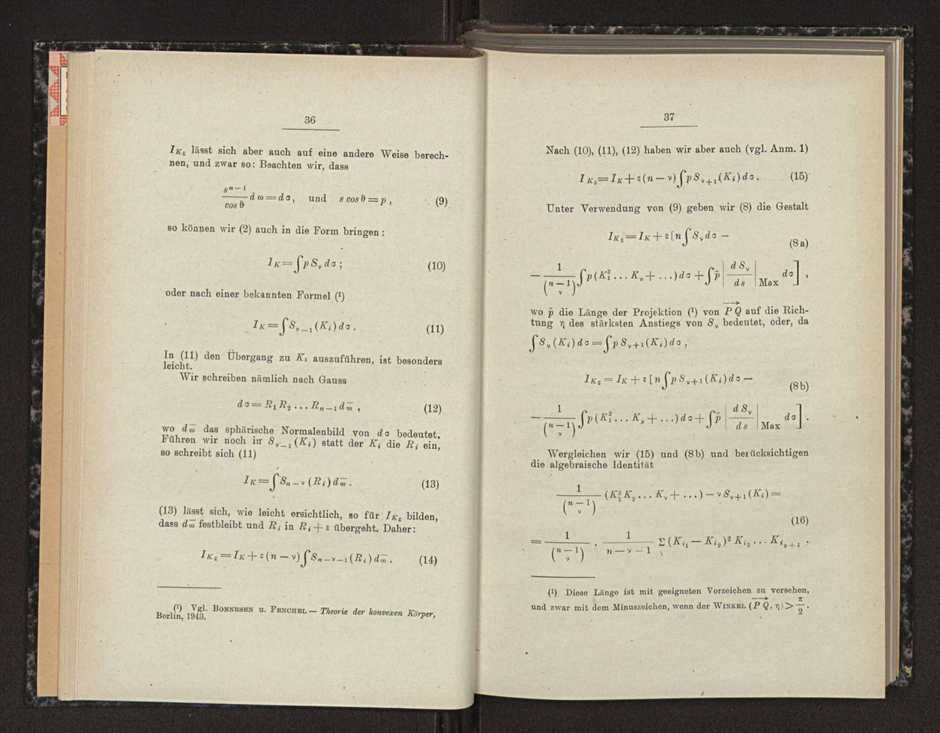 36
I_{K_ε} lässt sich aber auch auf eine andere Weise berech-
nen, und zwar so: Beachten wir, dass
\frac{s^{n-1}}{cos θ} d ω = d σ, und s cos θ = p, (9)
so können wir (2) auch in die Form bringen:
I_K = ∫ p S_ν d σ; (10)
oder nach einer bekannten Formel (¹)
I_K = ∫ S_{ν-1} (K_i) d σ. (11)
In (11) den Übergang zu K_ε auszuführen, ist besonders
leicht.
Wir schreiben nämlich nach Gauss
d σ = R_1 R_2 ... R_{n-1} d \overline{ω}, (12)
wo d \overline{ω} das sphärische Normalenbild von d σ bedeutet.
Führen wir noch in S_{ν-1} (K_i) statt der K_i die R_i ein,
so schreibt sich (11)
I_K = ∫ S_{n-ν} (R_i) d \overline{ω}. (13)
(13) lässt sich, wie leicht ersichtlich, so für I_{K_ε} bilden,
dass d \overline{ω} festbleibt und R_i in R_i + ε übergeht. Daher:
I_{K_ε} = I_K + ε (n - ν) ∫ S_{n-ν-1} (R_i) d \overline{ω}. (14)
(¹) Vgl. BONNESEN u. FENCHEL — Theorie der konvexen Körper,
Berlin, 1943.
37
Nach (10), (11), (12) haben wir aber auch (vgl. Anm. 1)
I_{K_ε} = I_K + ε (n - ν) ∫ p S_{ν+1} (K_i) d σ. (15)
Unter Verwendung von (9) geben wir (8) die Gestalt
I_{K_ε} = I_K + ε [ n ∫ S_ν d σ - (8a)
- \frac{1}{\binom{n-1}{ν}} ∫ p (K_1^2 ... K_ν + ...) d σ + ∫ \bar{p} |\frac{d S_ν}{d s}|_{Max} d σ ],
wo \bar{p} die Länge der Projektion (¹) von \overrightarrow{P Q} auf die Rich-
tung η des stärksten Anstiegs von S_ν bedeutet, oder, da
∫ S_ν (K_i) d σ = ∫ p S_{ν+1} (K_i) d σ,
I_{K_ε} = I_K + ε [ n ∫ p S_{ν+1} (K_i) d σ - (8b)
- \frac{1}{\binom{n-1}{ν}} ∫ p (K_1^2 ... K_ν + ...) d σ + ∫ \bar{p} |\frac{d S_ν}{d s}|_{Max} d σ ].
Wergleichen wir (15) und (8b) und berücksichtigen
die algebraische Identität
\frac{1}{\binom{n-1}{ν}} (K_1^2 K_2 ... K_ν + ...) - ν S_{ν+1} (K_i) =
(16)
= \frac{1}{\binom{n-1}{ν}} . \frac{1}{n-ν-1} Σ (K_{i_1} - K_{i_2})^2 K_{i_3} ... K_{i_{ν+1}}.
(¹) Diese Länge ist mit geeigneten Vorzeichen zu versehen,
und zwar mit dem Minuszeichen, wenn der WINKEL (\overrightarrow{P Q}, η) > \frac{π}{2}.